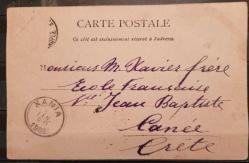 CARTE POSTALE
Ce côté est exclusivement réservé à l'adresse.
Monsieur M. Xavier frère
Ecole Française
St Jean Baptiste
Canée
Crète
XANIA